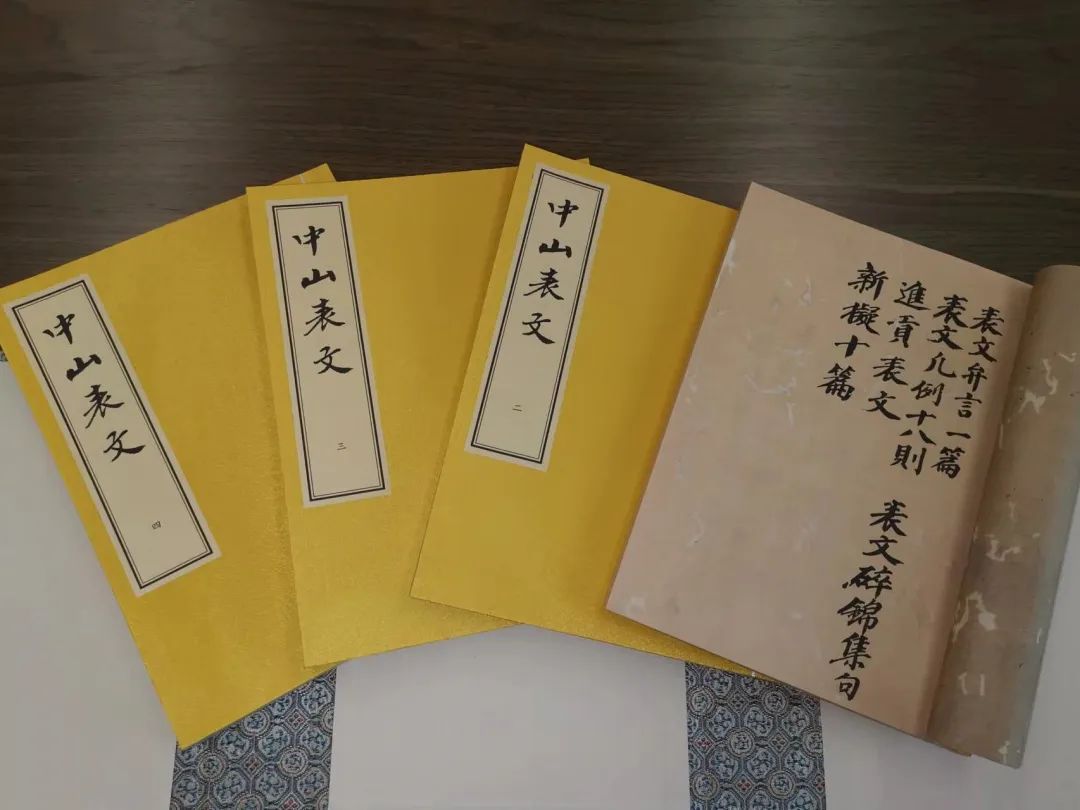 表文弁言一篇
表文凡例十八則
進貢表文
新擬十篇
表文碎錦集句
中山表文
二
中山表文
三
中山表文
四